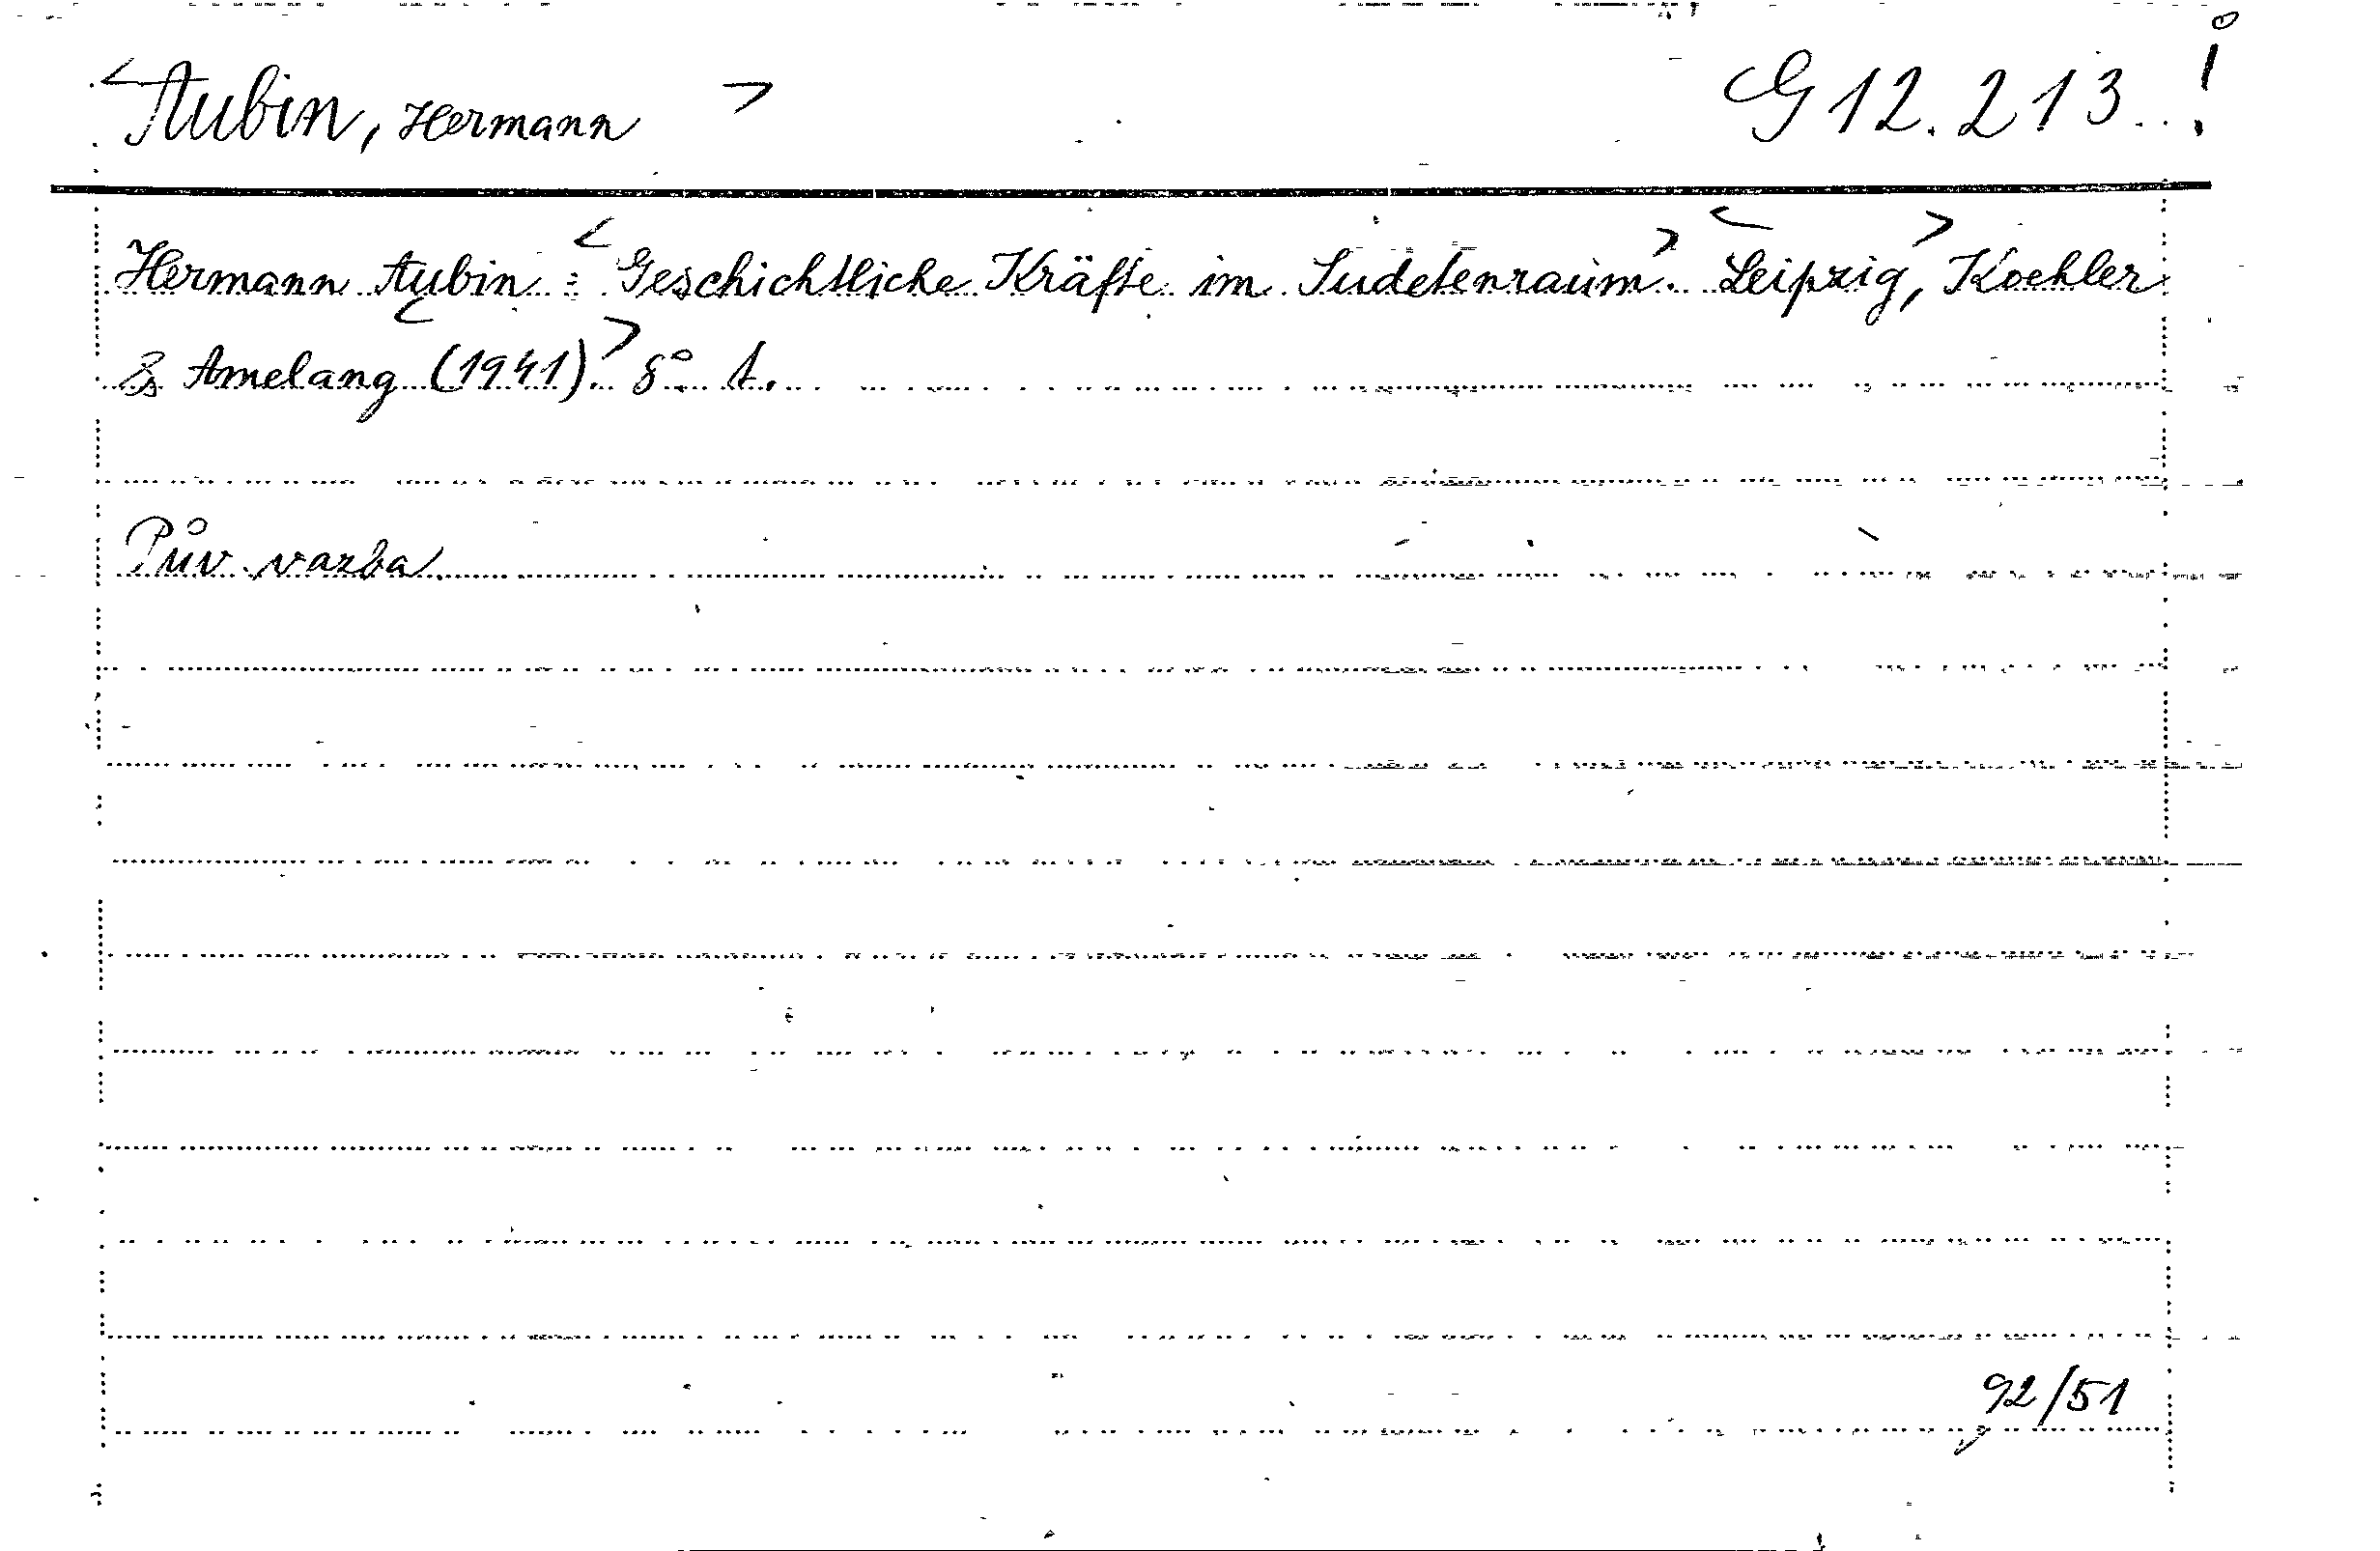 <Aubin, Hermann> G 12.213 !
Hermann Aubin: <Geschichtliche Kräfte im Sudetenraum>. <Leipzig>, Koehler
& Amelang <(1941).> 8° A.
Pův. vazba.
92/51